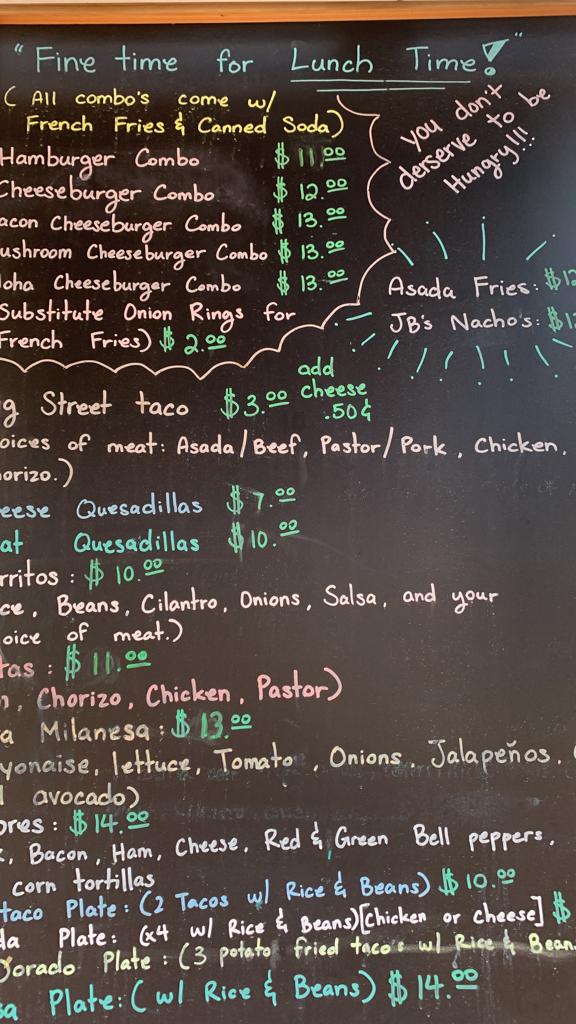 "Fine time for Lunch Time!"
( All combo's come w/
French Fries & Canned Soda)
you don't
derserve to be
Hungry!!!
Hamburger Combo $ 11.00
Cheeseburger Combo $ 12.00
acon Cheeseburger Combo $ 13.00
ushroom Cheeseburger Combo $ 13.00
loha Cheeseburger Combo $ 13.00
Substitute Onion Rings for
French Fries) $ 2.00
Asada Fries: $
JB's Nacho's: $
g Street taco $3.00 add cheese .50¢
oices of meat: Asada/Beef, Pastor/Pork, Chicken,
orizo.)
eese Quesadillas $ 7.00
at Quesadillas $ 10.00
rritos : $ 10.00
ce, Beans, Cilantro, Onions, Salsa, and your
oice of meat.)
tas : $ 11.00
n, Chorizo, Chicken, Pastor)
a Milanesa : $ 13.00
yonaise, lettuce, Tomato, Onions, Jalapeños,
avocado)
ores : $ 14.00
, Bacon, Ham, Cheese, Red & Green Bell peppers,
corn tortillas
taco Plate: (2 Tacos w/ Rice & Beans) $ 10.00
da Plate: (x4 w/ Rice & Beans)[Chicken or cheese] $
Dorado Plate : (3 potato fried taco's w/ Rice & Bean
sa Plate: ( w/ Rice & Beans) $ 14.00